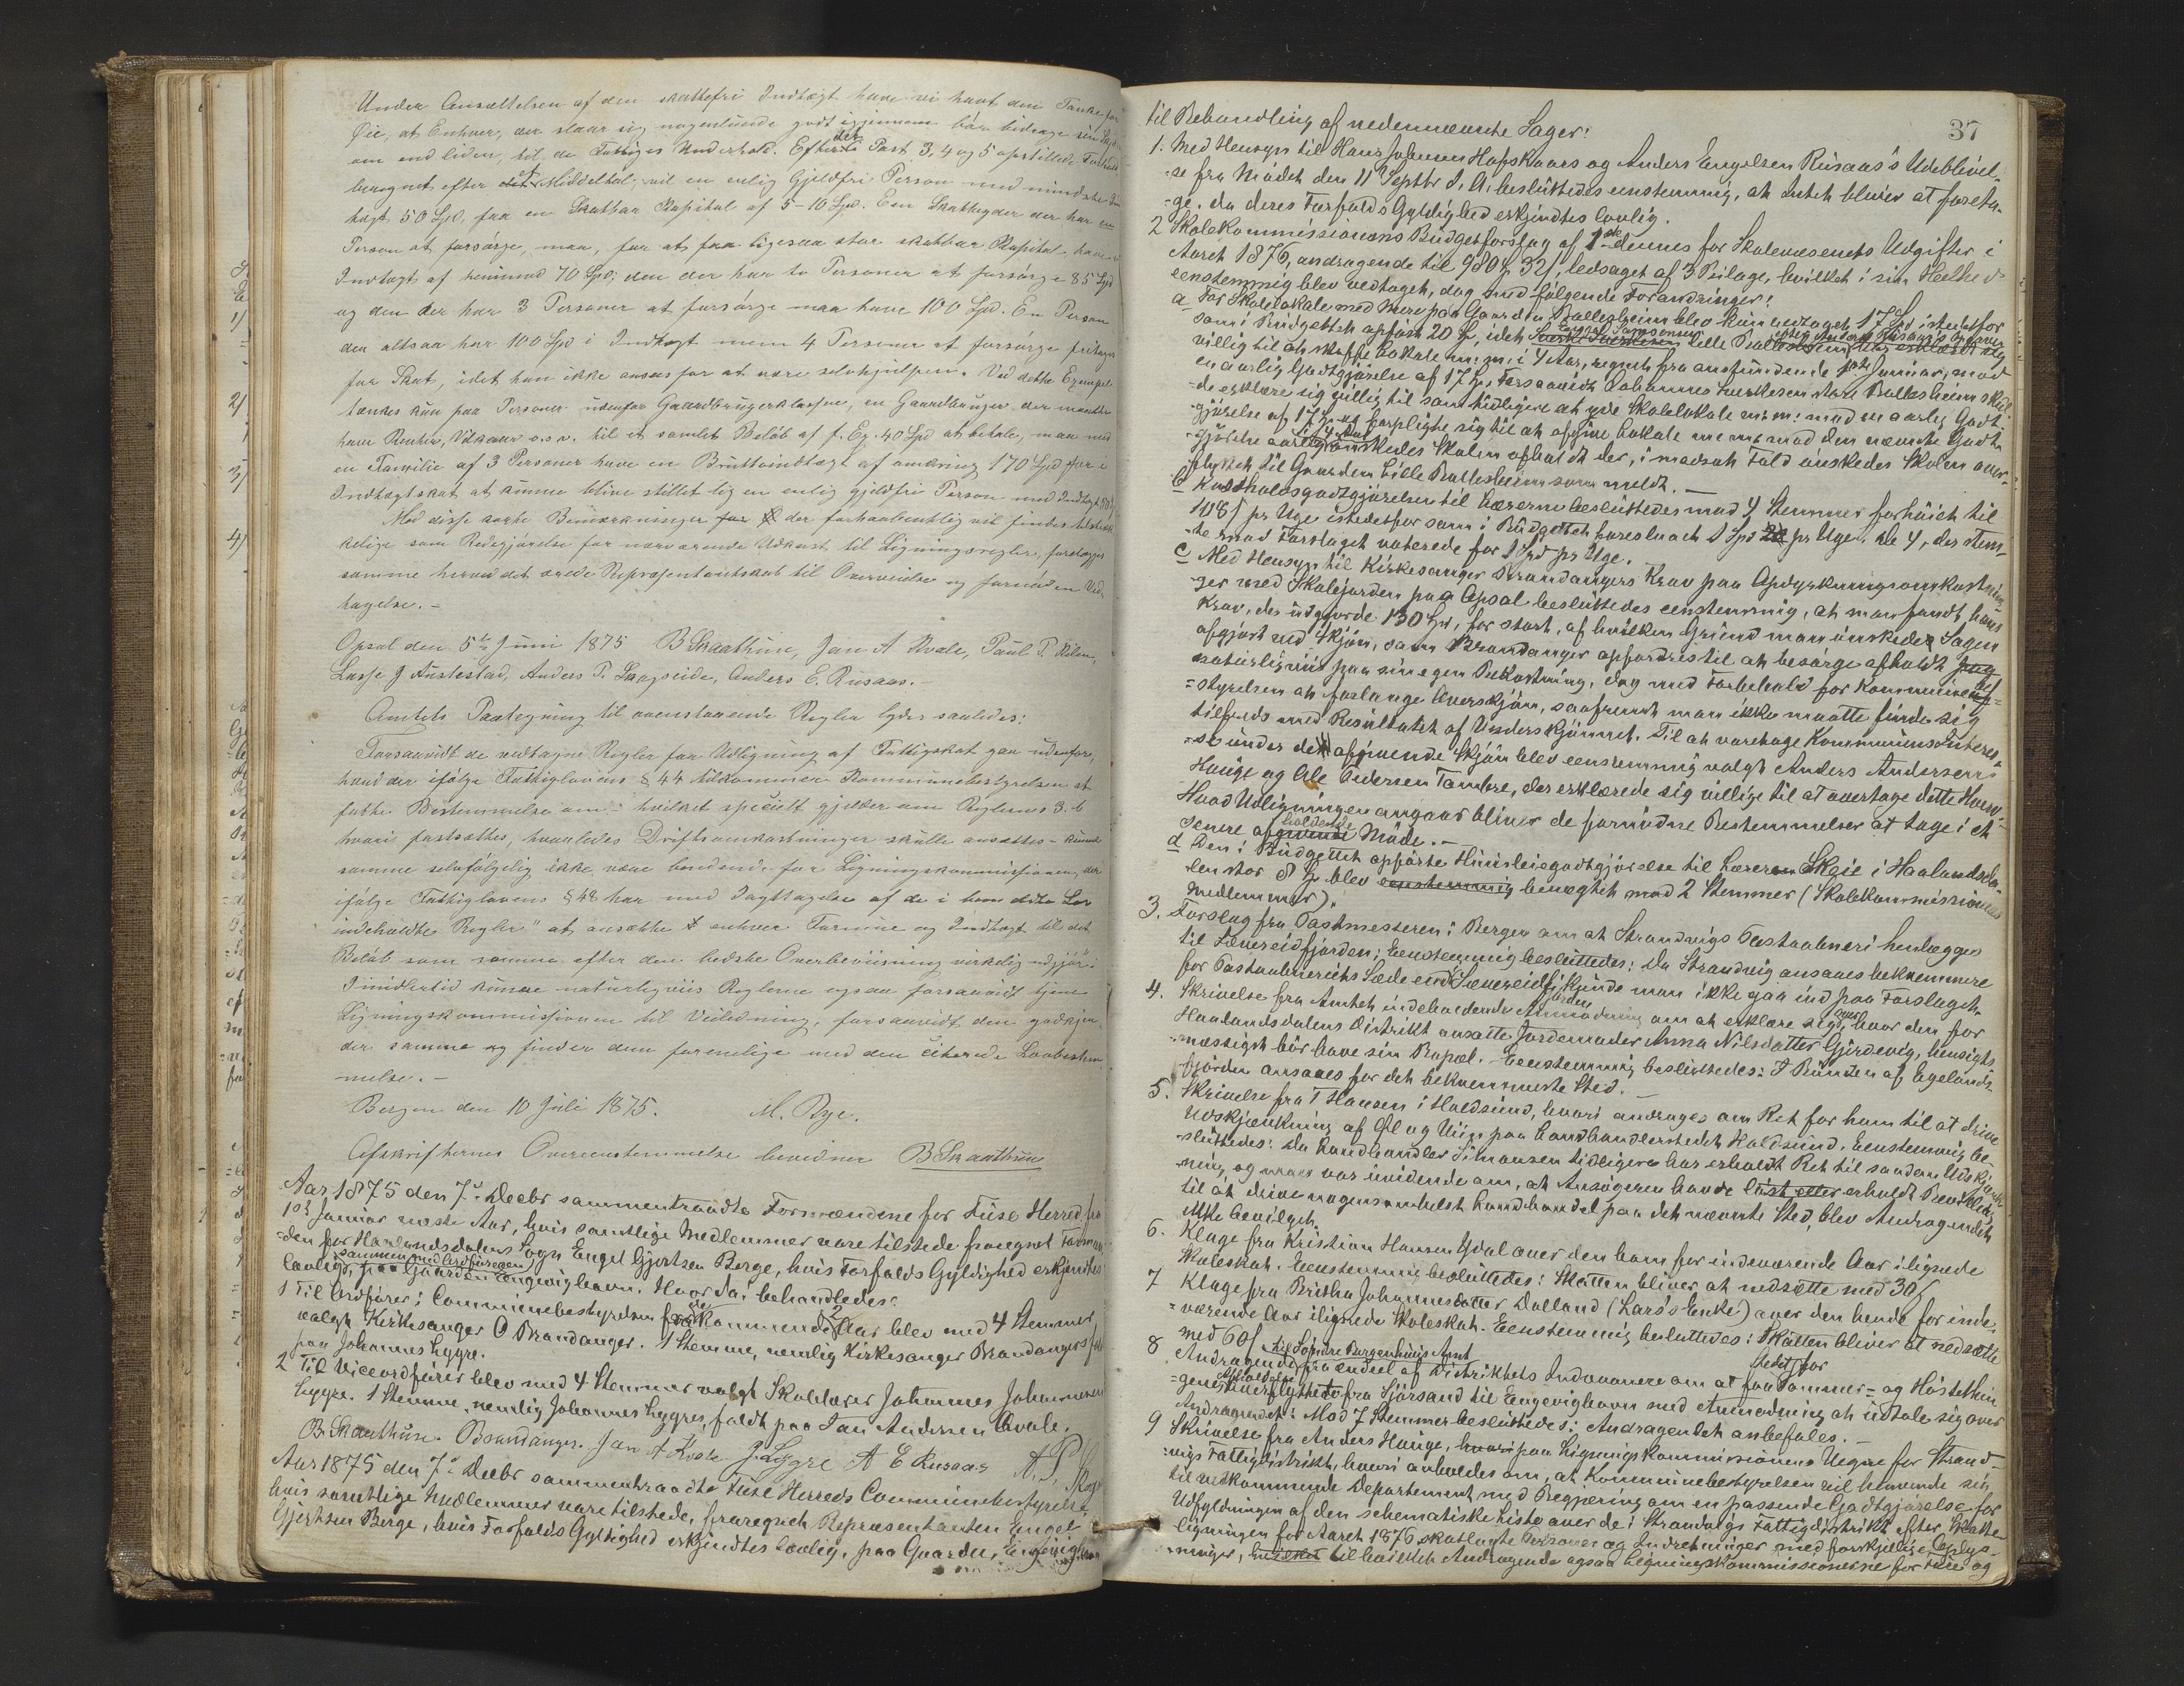 Under Ansættelsen af den skattefri Indtægt have vi havt den Tanke for
Øie, at Enhver, der slaar sig nogenlunde godt igjennem bør bidrage sin
om end liden, til de Fattiges Underhold. Efter de i Post 3, 4 og 5 opstillede
beregnet efter et Middeltal, vil en enlig Gjeldfri Person med mindste Ind
tægt, 50 Spd, faa en Skatbar Kapital af 5-10 Spd. Een Skatteyder der har en
Person at forsørge, maa, for at faa ligesaa stor skatbar Kapital have en
Indtægt af henimod 70 Spd; den der har to Personer at forsørge 85 Spd
og den der har 3 Personer at forsørge maa have 100 Spd. En Person
der altsaa har 100 Spd i Indtægt men 4 Personer at forsørge fritages
for Skat, idet han ikke ansees for at være selvhjulpen. Ved dette Exempel
tænkes kun paa Personer udenfor Gaardbrugerklassen, en Gaardbruger der maatte
have Renter, Vilkaar o.s.v. til et samlet Beløb af f. Ex. 40 Spd at betale, maa med
en Familie af 3 Personer have en Bruttoindtægt af omkring 170 Spd for i
Indtægtskat at kunne blive stillet lig en enlig gjeldfri Person med Indtægt
Med disse korte Bemærkninger der forhaabentlig vil findes tilstræk
kelige som Redegjørelse for nærværende Udkast til Ligningsregler, forelægges
samme herved det ærede Repræsentantskab til Overveielse og fornøden Ved
tagelse. -
Opsal den 5te Juni 1875 B Skaathun, Jan A Kvale, Paul P. Kilen,
Lasse J Austestad, Anders P. Skogseide, Anders E. Rusaas. -
Amtets Paategning til ovenstaaende Regler lyder saaledes:
Forsaavidt de vedtagne Regler for Udligning af Fattigskat gaa udenfor,
hvad der ifølge Fattiglovens § 44 tilkommer Kommunebestyrelsen at
fatte Bestemmelse om - hvilket specielt gjelder om Reglernes 3. b
hvori fastsættes, hvorledes Driftsomkostninger skulle ansættes - kunne
samme selvfølgelig ikke være bindende for Ligningskommissionen, der
ifølge Fattiglovens § 48 har med Iagttagelse af de i Lov
indeholdte Regler" at ansætte enhver Formue og Indtægt til det
Beløb som samme efter den bedste Overbeviisning virkelig udgjør.
Imidlertid kunne naturligviis Reglerne ogsaa forsaavidt tjene
Ligningskommissionen til Veiledning, forsaavidt den godkjen
der samme og finder dem forenelige med den citerede Lovbestem
melse. -
Bergen den 10 Juli 1875. M. Rye.
Afskrifternes Overeensstemmelse bevidner B Skaathun
Aar 1875 den 7de Decbr sammentraadte Formændene for Fuse Herred fra
1ste Januar næste Aar, hvis samtlige Medlemmer vare tilstede fraregnet Forman
den for Haalandsdalens Sogn Engel Gjertsen Berge, hvis Forfalds Gyldighed erkjendtes
lovlig, sammen med Ordføreren, paa Gaarden Engevighavn. Hvor da behandledes:
1 Til Ordfører i Communebestyrelsen for de kommende 2 Aar blev med 4 Stemmer
valgt Kirkesanger O Brandanger. 1 Stemme, nemlig Kirkesanger Brandangers faldt
paa Johannes Lygre.
2 Til Viceordfører blev med 4 Stemmer valgt Skolelærer Johannes Johannesen
Lygre. 1 Stemme, nemlig Johannes Lygres, faldt paa Jan Andersen Kvale.
B. Skaathun. Brandanger. Jan A Kvale J. Lygre A E Rusaas A. P. Skogs
Aar 1875 den 7de Decbr sammentraadte Fuse Herreds Communebestyrelse
hvis samtlige Medlemmer vare tilstede, fraregnet Repræsentanten Engel
Gjertsen Berge, hvis Forfalds Gyldighed erkjendtes lovlig, paa Gaarden Engevighavn
37
til Behandling af nedennævnte Sager:
1. Med Hensyn til Hans Johannes Hafskaars og Anders Engelsen Rusaas's Udeblivel-
-se fra Mødet den 11 Septbr d. A. besluttedes eenstemmig, at Intet bliver at foreta-
-ge, da deres Forfalds Gyldighed erkjendtes lovlig.
2 Skolekommissionens Budgetforslag af 1ste dennes for Skolevæsenets Udgifter i
Aaret 1876, andragende til 980 Spd 32 s, ledsaget af 3 Bilage, hvilket i sin Heelhed
eenstemmig blev vedtaget, dog med følgende Forandringer:
a For Skolelokale med mere paa Gaarden Ballesheim blev kun vedtaget 17 Spd istedetfor
som i Budgettet opført 20 Sp, idet Engel Samsonsen Lille Balles
villig til at skaffe Lokale m. m. i 4 Aar, regnet fra anstundende 1ste Januar, mod
en aarlig Godtgjørelse af 17 Sp. Forsaavidt Johannes Store Ballesheim skul-
-de erklære sig villig til som tidligere at yde Skolelokale m. m. mod en aarlig Godt-
gjørelse af 17 Sp og forpligte sig til at afgive Lokale m. m. mod den nævnte Godt-
-gjørelse aarlig i 4 Aar ønskedes Skolen afholdt der, i modsat Fald ønskedes Skolen over-
flyttet til Gaarden Lille Ballesheim som meldt. -
b Kostholdsgodtgjørelsen til Lærerne besluttedes med 4 Stemmer forhøiet til
108 s pr Uge istedetfor som i Budgettet foreslaaet 1 Spd pr Uge. De 4, der stem-
-te mod Forslaget voterede for 1 Spd pr Uge.
c Med Hensyn til Kirkesanger Brandangers Krav paa Opdyrkningsomkostnin-
ger med Skolejorden paa Opsal besluttedes eenstemmig, at man fandt hans
Krav, der udgjorde 130 Spd, for stort, af hvilken Grund man ønskede Sagen
afgjort ved Skjøn, som Brandanger opfordres til at besørge afholdt
naturligviis paa sin egen Bekostning, dog med Forbehold for Kommunebe-
=styrelsen at forlange Overskjøn, saafremt man ikke maatte finde sig
tilfreds med Resultatet af Underskjønnet. Til at varetage Kommunens Interes-
-se under det afgivende Skjøn blev eenstemmig valgt Anders Andersen
Hauge og Ole Pedersen Tombre, der erklærede sig villige til at overtage dette Hverv.
Hvad Udligningen angaar bliver de fornødne Bestemmelser at tage i et
senere afholdende Møde. -
d Den i Budgettet opførte Huusleiegodtgjørelse til Læreren Skeie i Haalandsda-
len stor 8 Sp blev eenstemmig benægtet mod 2 Stemmer (Skolekommissionens
Medlemmer).
3. Forslag fra Postmesteren i Bergen om at Strandvigs Postaabneri henlægges
til Sævereidfjorden; Eenstemmig besluttedes: Da Strandvig ansaaes bekvemmere
for Postaabneriets Sæde end Sævereidfjorden, kunde man ikke gaa ind paa Forslaget.
4. Skrivelse fra Amtet indeholdende Anmodning om at erklære sig over, hvor den for
Haalandsdalens Distrikt ansatte Jordemoder Anna Nilsdatter Gjerdevig, hensigts-
-mæssigst bør have sin Bopæl. - Eenstemmig besluttedes: I Bunden af Egelands-
fjorden ansaaes for det bekvemmeste Sted. -
5. Skrivelse fra T Hansen i Holdsund, hvori andrages om Ret for ham til at drive
Udskjænkning af Øl og Viin paa Landhandlerstedet Holdsund. Eenstemmig be-
-sluttedes: Da Landhandler Simonsen tidligere har erholdt Ret til saadan Udskjænk-
ning, og man var uvidende om, at Ansøgeren havde løst eller erholdt Bevilling
til at drive nogensomhelst Landhandel paa det nævnte Sted, blev Andragendet
ikke bevilget.
6. Klage fra Kristian Hansen Ydal over den ham for indeværende Aar ilignede
Skoleskat. Eenstemmig besluttedes: Skatten bliver at nedsætte med 30 s
7 Klage fra Britha Johannesdatter Dalland (Lars's Enke) over den hende for inde-
=værende Aar ilignede Skoleskat. Eenstemmig besluttedes: Skatten bliver at nedsætte
med 60 s
8 Andragende til Søndre Bergenhuus Amt fra endeel af Distriktets Indvaanere om at faa Stedet for Sommer- og Høstethin
=genes Afholdelse overflyttet fra Sjørsand til Engevighavn med Anmodning at udtale sig over
Andragendet: Mod 7 Stemmer besluttedes: Andragendet anbefales. -
9 Skrivelse fra Anders Hauge, hvori paa Ligningskommissionens Vegne for Strand-
-vigs Fattigdistrikt, hvori anholdes om, at Kommunebestyrelsen vil henvende sig
til vedkommende Departement med Begjæring om en passende Godtgjørelse for
Udfyldningen af den schematiske Liste over de i Strandvigs Fattigdistrikt efter Skatte-
ligningen for Aaret 1876 skatlagte Personer og Indretninger med forskjellige Oplys-
-ninger, hvilket til hvilket Andragende ogsaa Ligningskommissionerne for Fuse og